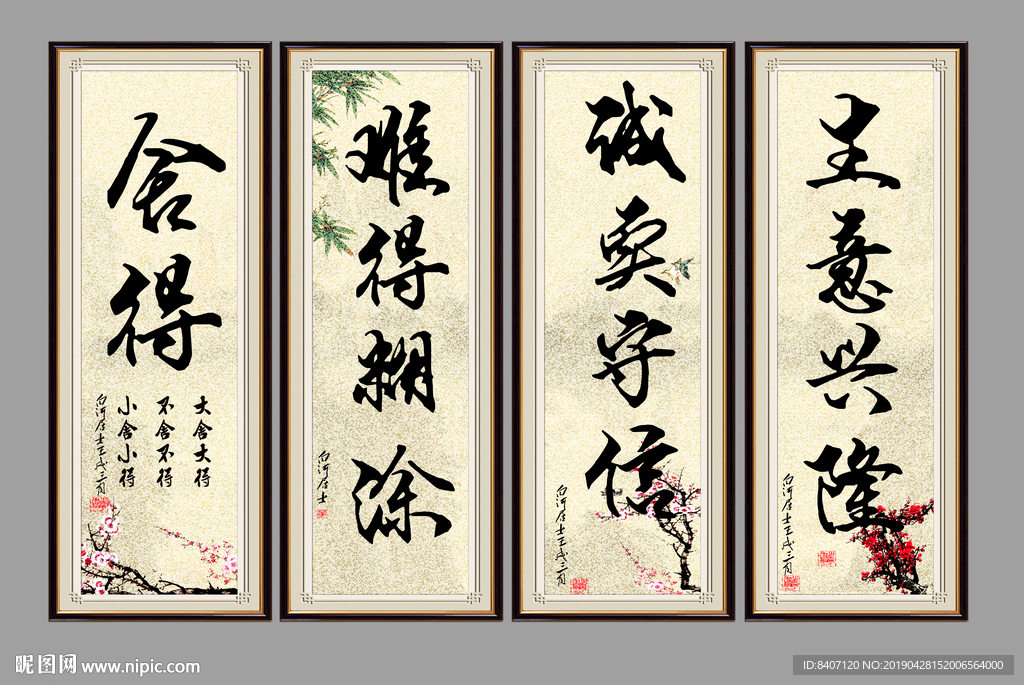 舍得
大舍大得
不舍不得
小舍小得
白河居士壬戌三月
难得糊涂
白河居士
诚实守信
白河居士壬戌三月
生意兴隆
白河居士壬戌三月
昵图网 www.nipic.com
ID:8407120 NO:20190428152006564000